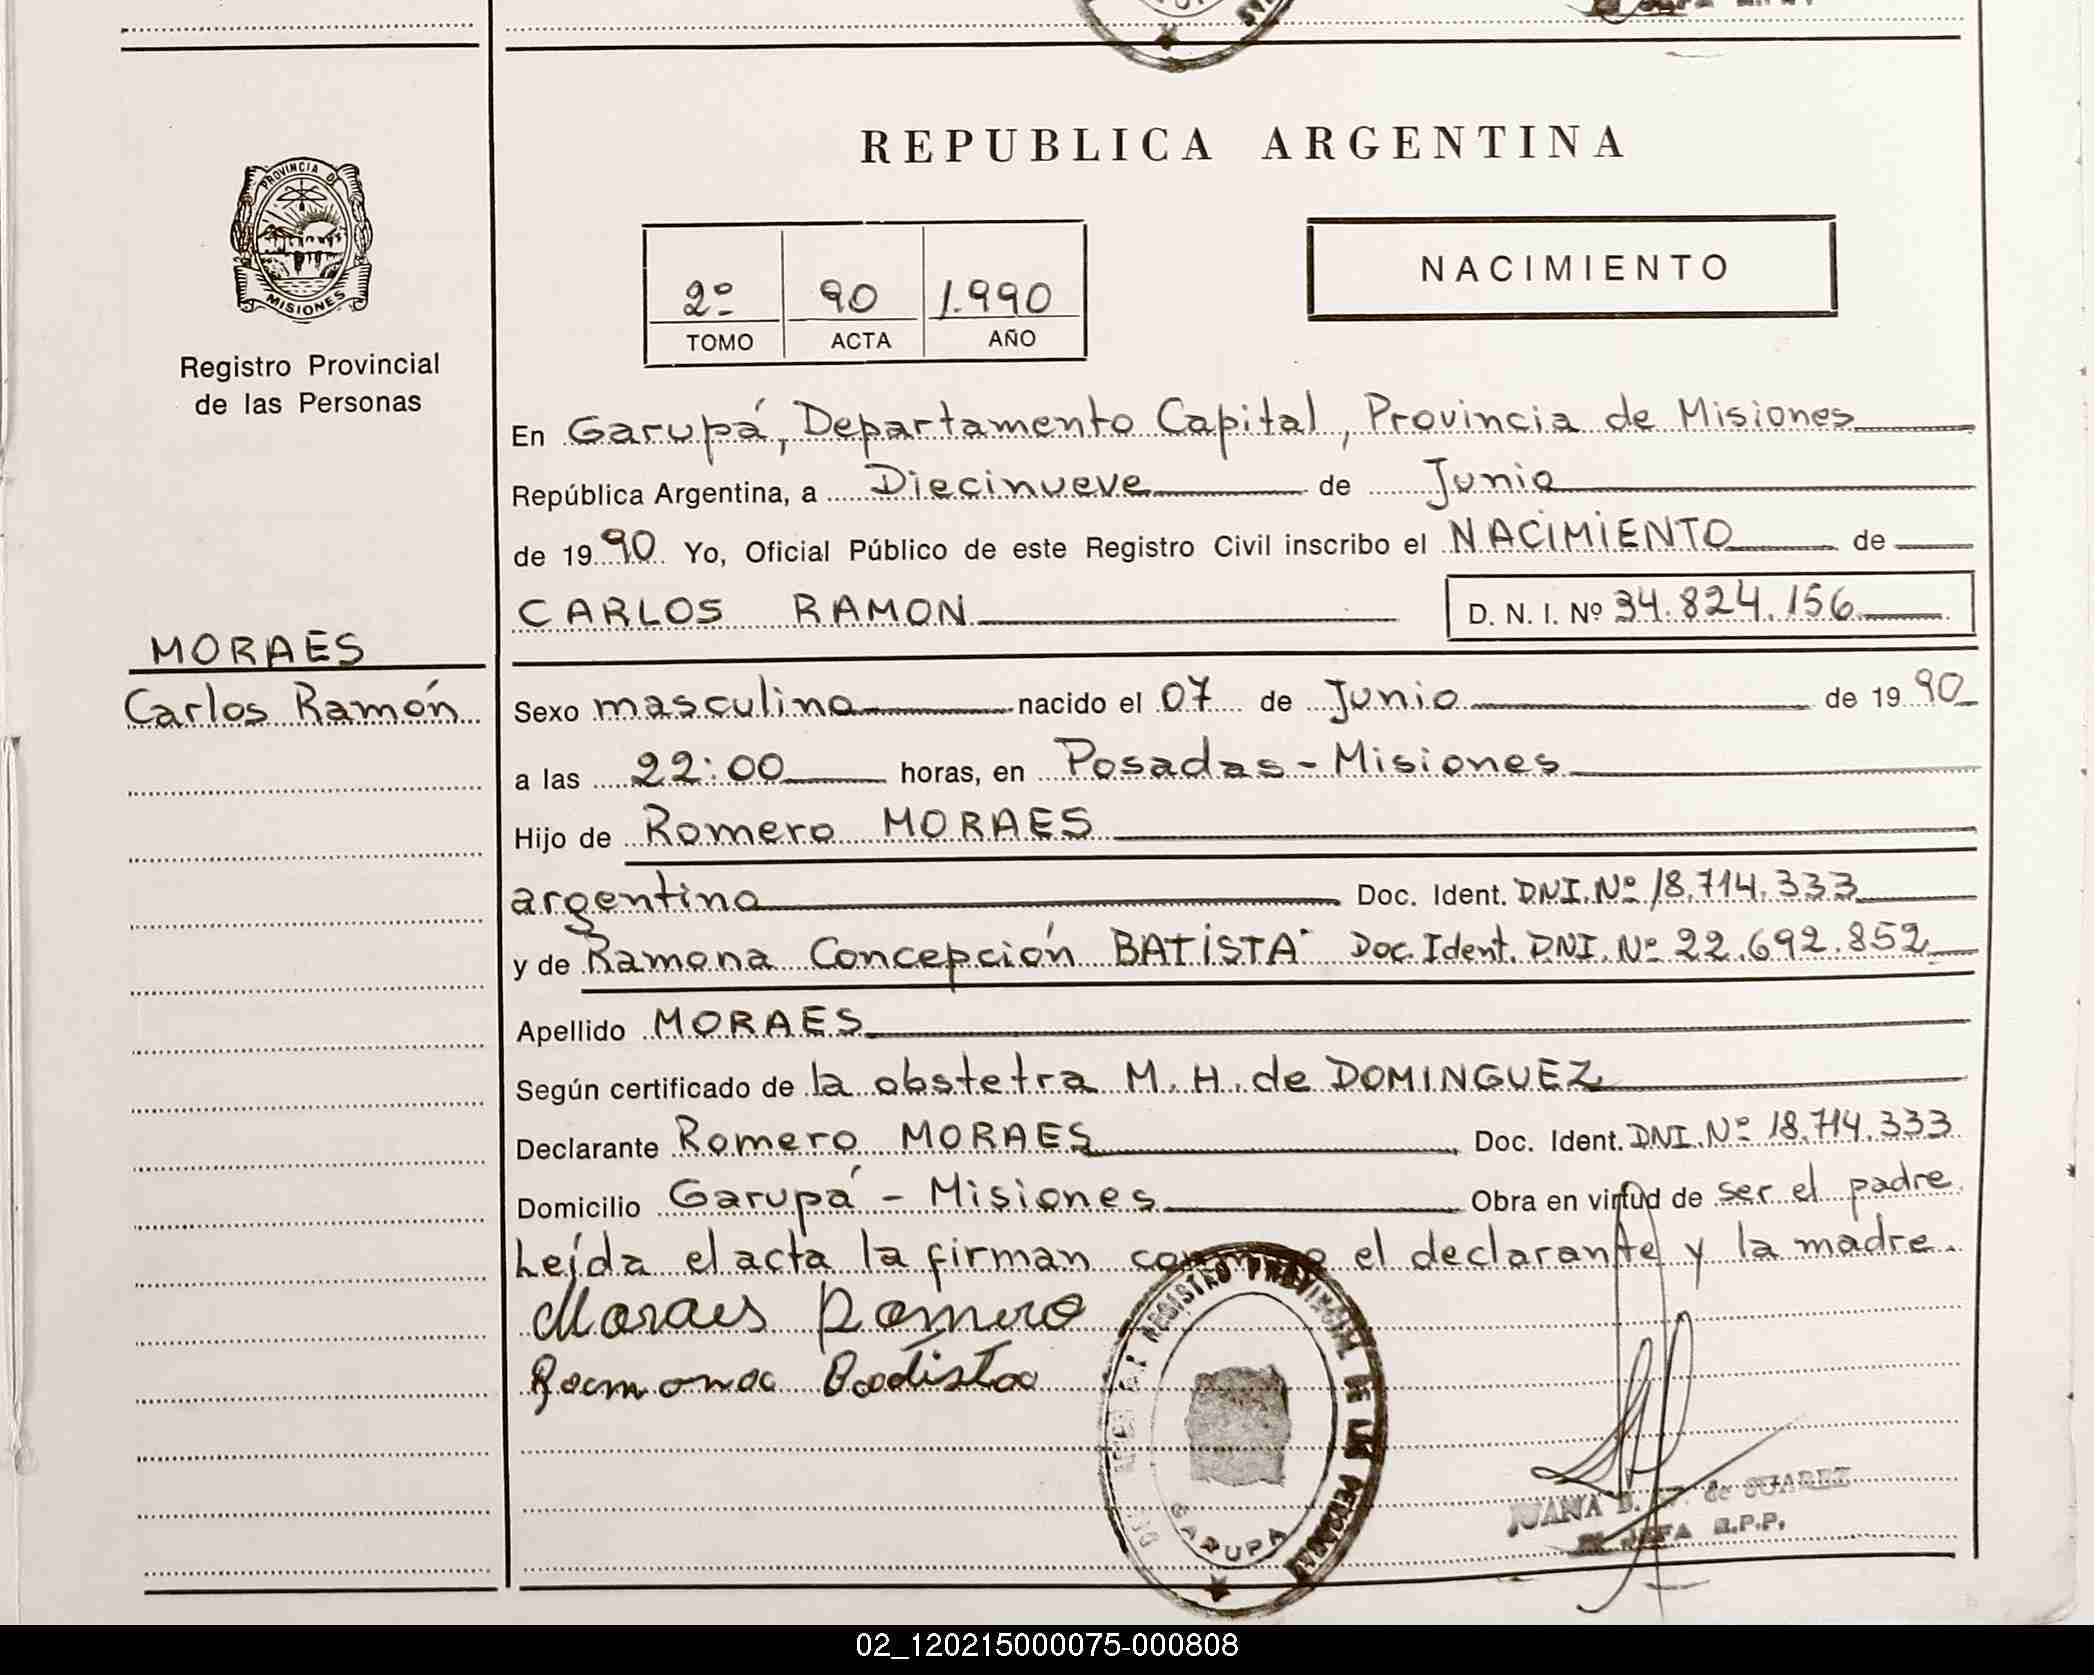 REPUBLICA ARGENTINA
PROVINCIA DE
MISIONES
Registro Provincial
de las Personas
2º 90 1.990
TOMO ACTA AÑO
NACIMIENTO
En Garupá, Departamento Capital, Provincia de Misiones
República Argentina, a Diecinueve de Junio
de 1990 Yo, Oficial Público de este Registro Civil inscribo el NACIMIENTO de
CARLOS RAMON D. N. I. Nº 34.824.156
MORAES
Carlos Ramón
Sexo masculino nacido el 07 de Junio de 1990
a las 22:00 horas, en Posadas - Misiones
Hijo de Romero MORAES
argentino Doc. Ident. DNI. Nº 18.714.333
y de Ramona Concepción BATISTA Doc. Ident. DNI. Nº 22.692.852
Apellido MORAES
Según certificado de la obstetra M. H. de DOMINGUEZ
Declarante Romero MORAES Doc. Ident. DNI. Nº 18.714.333
Domicilio Garupá - Misiones Obra en virtud de ser el padre
Leída el acta la firman el declarante y la madre.
Moraes Romero
Ramona Batista
REGISTRO PROVINCIAL DE LAS PERSONAS
GARUPA
JUANA de SUAREZ
JEFA R.P.P.
02_120215000075-000808